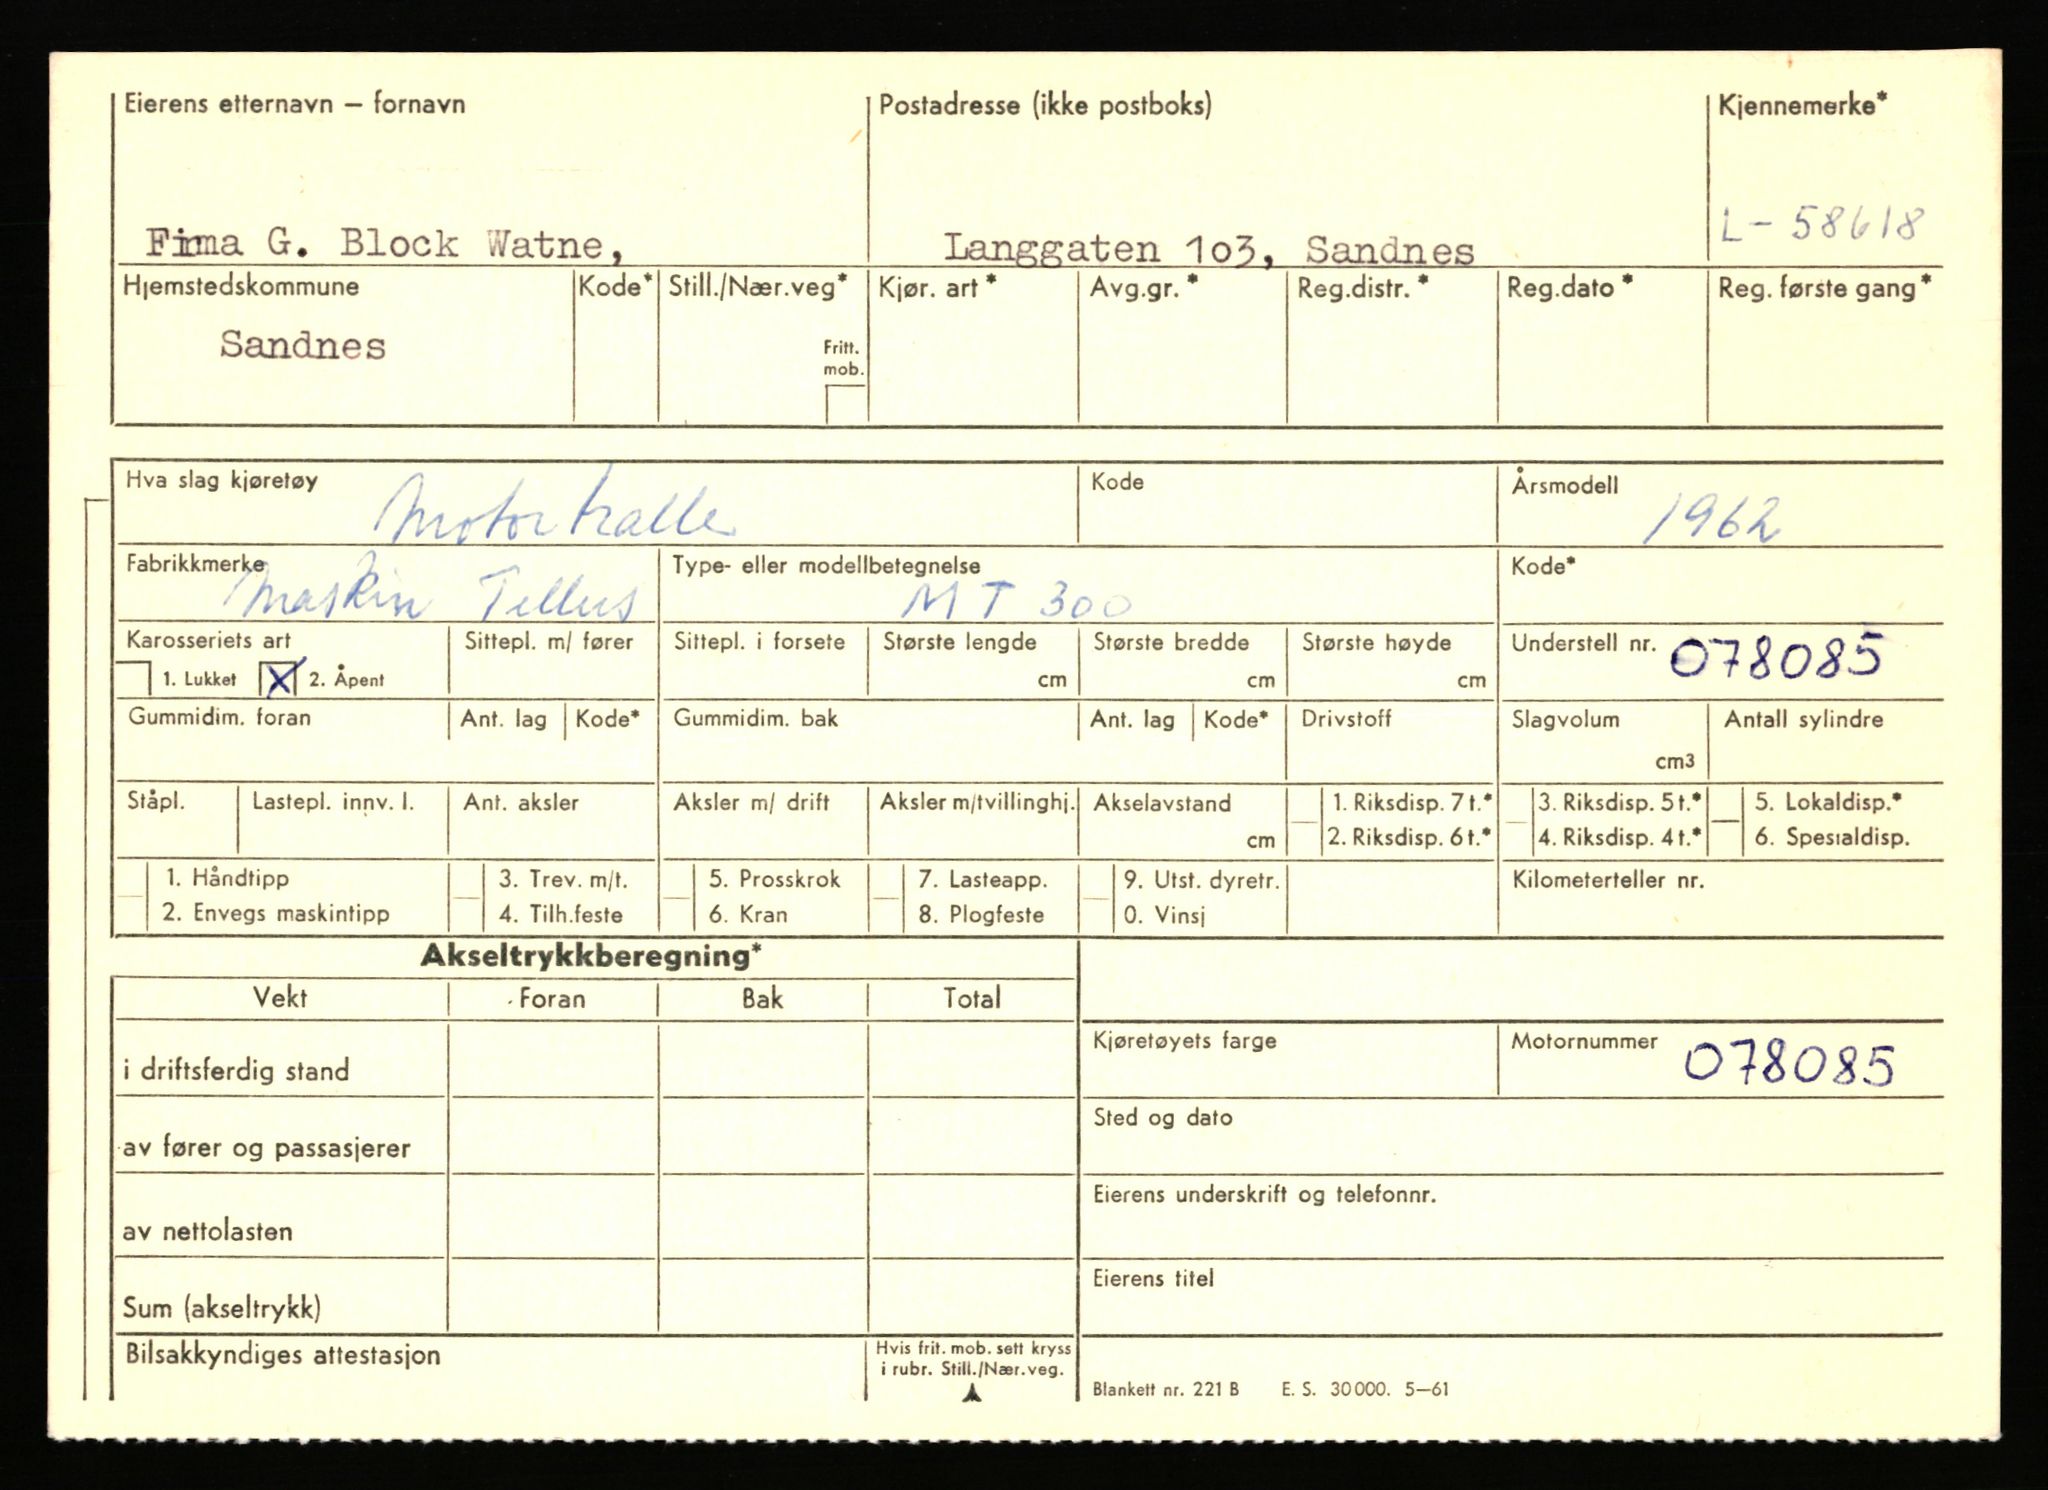 Eierens etternavn – fornavn Postadresse (ikke postboks) Kjennemerke*
Firma G. Block Watne, Langgaten 1o3, Sandnes L - 58618
Hjemstedskommune Kode* Still./Nær.veg* Kjør. art* Avg.gr.* Reg.distr.* Reg.dato* Reg. første gang*
Sandnes Fritt. mob.
Hva slag kjøretøy Motortralle Kode Årsmodell 1962
Fabrikkmerke Maskin Tellus Type- eller modellbetegnelse MT 300 Kode*
Karosseriets art Sittepl. m/ fører Sittepl. i forsete Største lengde Største bredde Største høyde Understell nr. 078085
1. Lukket X 2. Åpent cm cm cm
Gummidim. foran Ant. lag Kode* Gummidim. bak Ant. lag Kode* Drivstoff Slagvolum Antall sylindre
cm3
Ståpl. Lastepl. innv. l. Ant. aksler Aksler m/ drift Aksler m/tvillinghj. Akselavstand 1. Riksdisp. 7 t.* 3. Riksdisp. 5 t.* 5. Lokaldisp.*
cm 2. Riksdisp. 6 t.* 4. Riksdisp. 4 t.* 6. Spesialdisp.
1. Håndtipp 3. Trev. m/t. 5. Prosskrok 7. Lasteapp. 9. Utst. dyretr. Kilometerteller nr.
2. Envegs maskintipp 4. Tilh.feste 6. Kran 8. Plogfeste 0. Vinsj
Akseltrykkberegning*
Vekt Foran Bak Total
i driftsferdig stand Kjøretøyets farge Motornummer 078085
av fører og passasjerer Sted og dato
av nettolasten Eierens underskrift og telefonnr.
Sum (akseltrykk) Eierens titel
Bilsakkyndiges attestasjon Hvis frit. mob. sett kryss
i rubr. Still./Nær.veg.
Blankett nr. 221 B E. S. 30 000. 5–61